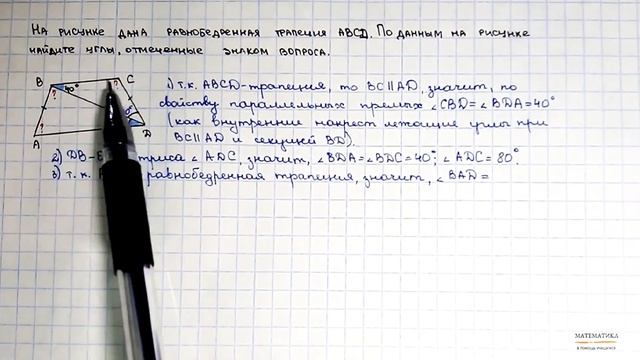 На рисунке дана равнобедренная трапеция ABCD. По данным на рисунке
найдите углы, отмеченные знаком вопроса.
B 40° ? C
? ?
A D
1) т.к. ABCD-трапеция, то BC∥AD, значит, по
свойству параллельных прямых ∠CBD=∠BDA=40°
(как внутренние накрест лежащие углы при
BC∥AD и секущей BD).
2) DB- ∠ADC, значит, ∠BDA=∠BDC=40°; ∠ADC=80°.
3) т.к. равнобедренная трапеция, значит, ∠BAD=
МАТЕМАТИКА
В ПОМОЩЬ УЧАЩИМСЯ